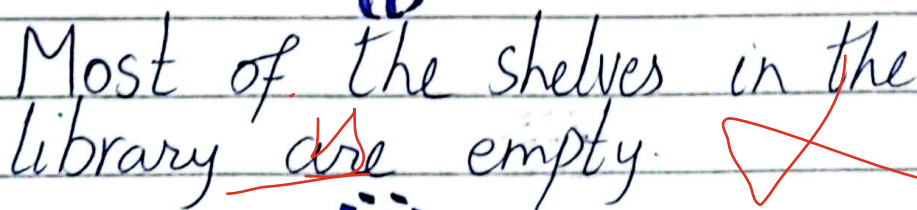 Most of the shelves in the
library are empty.